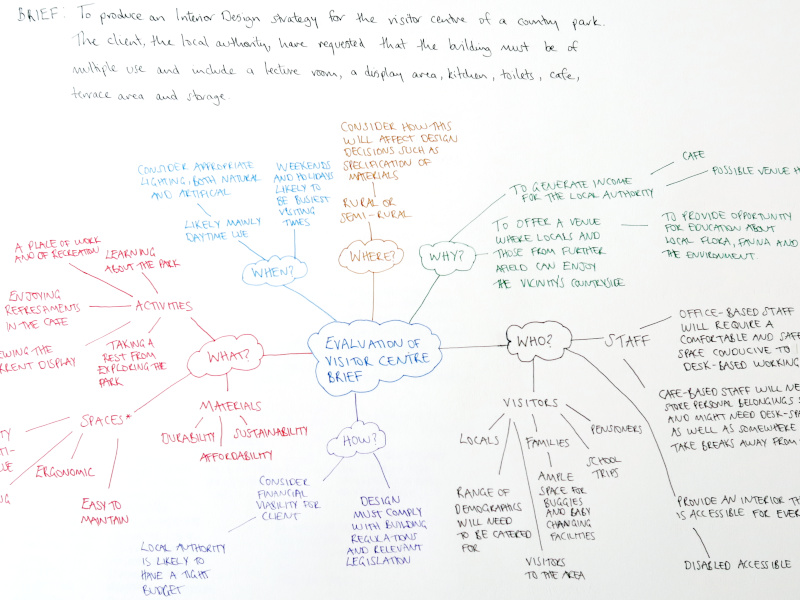 BRIEF: To produce an Interior Design strategy for the visitor centre of a country park.
The client, the local authority, have requested that the building must be of
multiple use and include a lecture room, a display area, kitchen, toilets, cafe,
terrace area and storage.
EVALUATION OF
VISITOR CENTRE
BRIEF
WHEN?
LIKELY MAINLY
DAYTIME USE
CONSIDER APPROPRIATE
LIGHTING, BOTH NATURAL
AND ARTIFICIAL
WEEKENDS
AND HOLIDAYS
LIKELY TO
BE BUSIEST
VISITING
TIMES
WHERE?
RURAL OR
SEMI-RURAL
CONSIDER HOW THIS
WILL AFFECT DESIGN
DECISIONS SUCH AS
SPECIFICATION OF
MATERIALS
WHY?
TO GENERATE INCOME
FOR THE LOCAL AUTHORITY
CAFE
POSSIBLE VENUE H
TO OFFER A VENUE
WHERE LOCALS AND
THOSE FROM FURTHER
AFIELD CAN ENJOY
THE VICINITY'S COUNTRYSIDE
TO PROVIDE OPPORTUNITY
FOR EDUCATION ABOUT
LOCAL FLORA, FAUNA AND
THE ENVIRONMENT.
WHO?
STAFF
OFFICE-BASED STAFF
WILL REQUIRE A
COMFORTABLE AND SAFE
SPACE CONDUCIVE TO
DESK-BASED WORKING
CAFE-BASED STAFF WILL NE
STORE PERSONAL BELONGINGS S
AND MIGHT NEED DESK-SPA
AS WELL AS SOMEWHERE
TAKE BREAKS AWAY FROM
VISITORS
LOCALS
RANGE OF
DEMOGRAPHICS
WILL NEED
TO BE CATERED
FOR
FAMILIES
AMPLE
SPACE FOR
BUGGIES
AND BABY
CHANGING
FACILITIES
PENSIONERS
SCHOOL
TRIPS
VISITORS
TO THE AREA
PROVIDE AN INTERIOR TH
IS ACCESSIBLE FOR EVER
DISABLED ACCESSIBLE
HOW?
CONSIDER
FINANCIAL
VIABILITY FOR
CLIENT
LOCAL AUTHORITY
IS LIKELY TO
HAVE A TIGHT
BUDGET
DESIGN
MUST COMPLY
WITH BUILDING
REGULATIONS
AND RELEVANT
LEGISLATION
WHAT?
ACTIVITIES
A PLACE OF WORK
AND OF RECREATION
LEARNING
ABOUT THE PARK
ENJOYING
REFRESHMENTS
IN THE CAFE
EWING THE
RRENT DISPLAY
TAKING A
REST FROM
EXPLORING THE
PARK
MATERIALS
DURABILITY
SUSTAINABILITY
AFFORDABILITY
SPACES*
ERGONOMIC
EASY TO
MAINTAIN